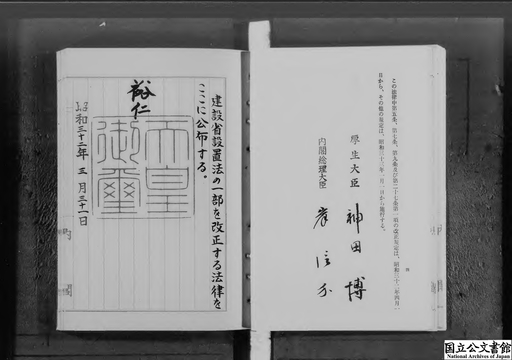 この法律中第五条、第七条、第九条及び第二十七条第一項の改正規定は、昭和三十二年四月一
日から、その他の規定は、昭和三十三年一月一日から施行する。
厚生大臣 神田博
内閣総理大臣 岸信介
建設省設置法の一部を改正する法律を
ここに公布する。
裕仁
天皇御璽
昭和三十二年三月三十一日
国立公文書館
National Archives of Japan